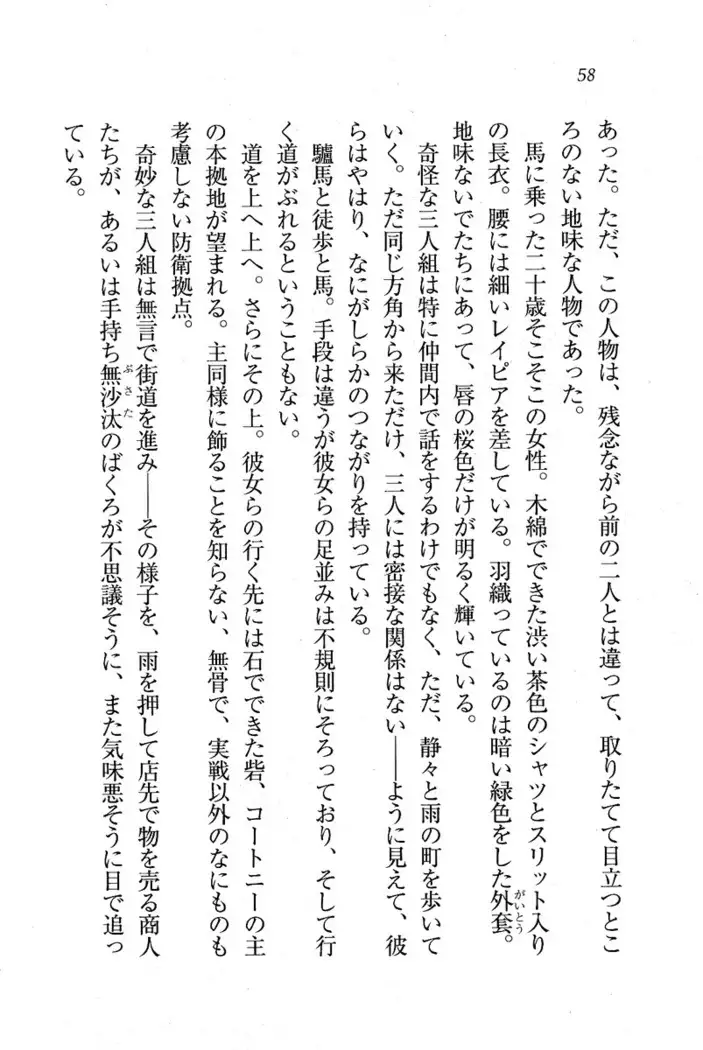 58
あった。ただ、この人物は、残念ながら前の二人とは違って、取りたてて目立つとこ
ろのない地味な人物であった。
馬に乗った二十歳そこそこの女性。木綿でできた渋い茶色のシャツとスリット入り
の長衣。腰には細いレイピアを差している。羽織っているのは暗い緑色をした外套。
がいとう
地味ないでたちにあって、唇の桜色だけが明るく輝いている。
奇怪な三人組は特に仲間内で話をするわけでもなく、ただ、静々と雨の町を歩いて
いく。ただ同じ方角から来ただけ、三人には密接な関係はない――ように見えて、彼
らはやはり、なにがしらかのつながりを持っている。
驢馬と徒歩と馬。手段は違うが彼女らの足並みは不規則にそろっており、そして行
く道がぶれるということもない。
道を上へ上へ。さらにその上。彼女らの行く先には石でできた砦、コートニーの主
の本拠地が望まれる。主同様に飾ることを知らない、無骨で、実戦以外のなにものも
考慮しない防衛拠点。
奇妙な三人組は無言で街道を進み――その様子を、雨を押して店先で物を売る商人
たちが、あるいは手持ち無沙汰のばくろが不思議そうに、また気味悪そうに目で追っ
ぶさた
ている。